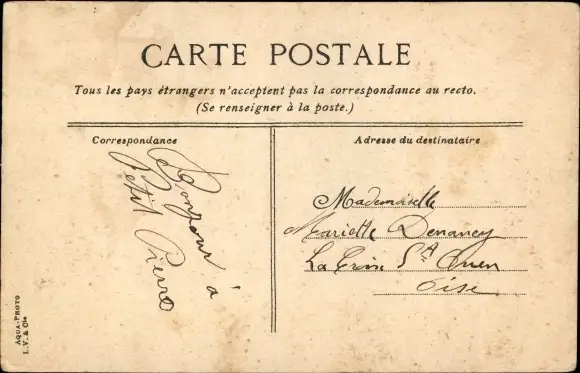 CARTE POSTALE
Tous les pays étrangers n'acceptent pas la correspondance au recto.
(Se renseigner à la poste.)
Correspondance
Bonjour à
Petit Pierre
Adresse du destinataire
Mademoiselle
Mariette Denancy
La Croix St Ouen
Oise
AQUA-PHOTO
L.V. & Cie